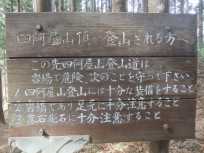 四阿屋山頂へ登山される方へ
この先四阿屋山登山道は
岩場で危険、次のことを守って下さい
1 四阿屋山登山には十分な装備をすること
2 岩場であり足元に十分注意すること
3 落石落木に十分注意すること